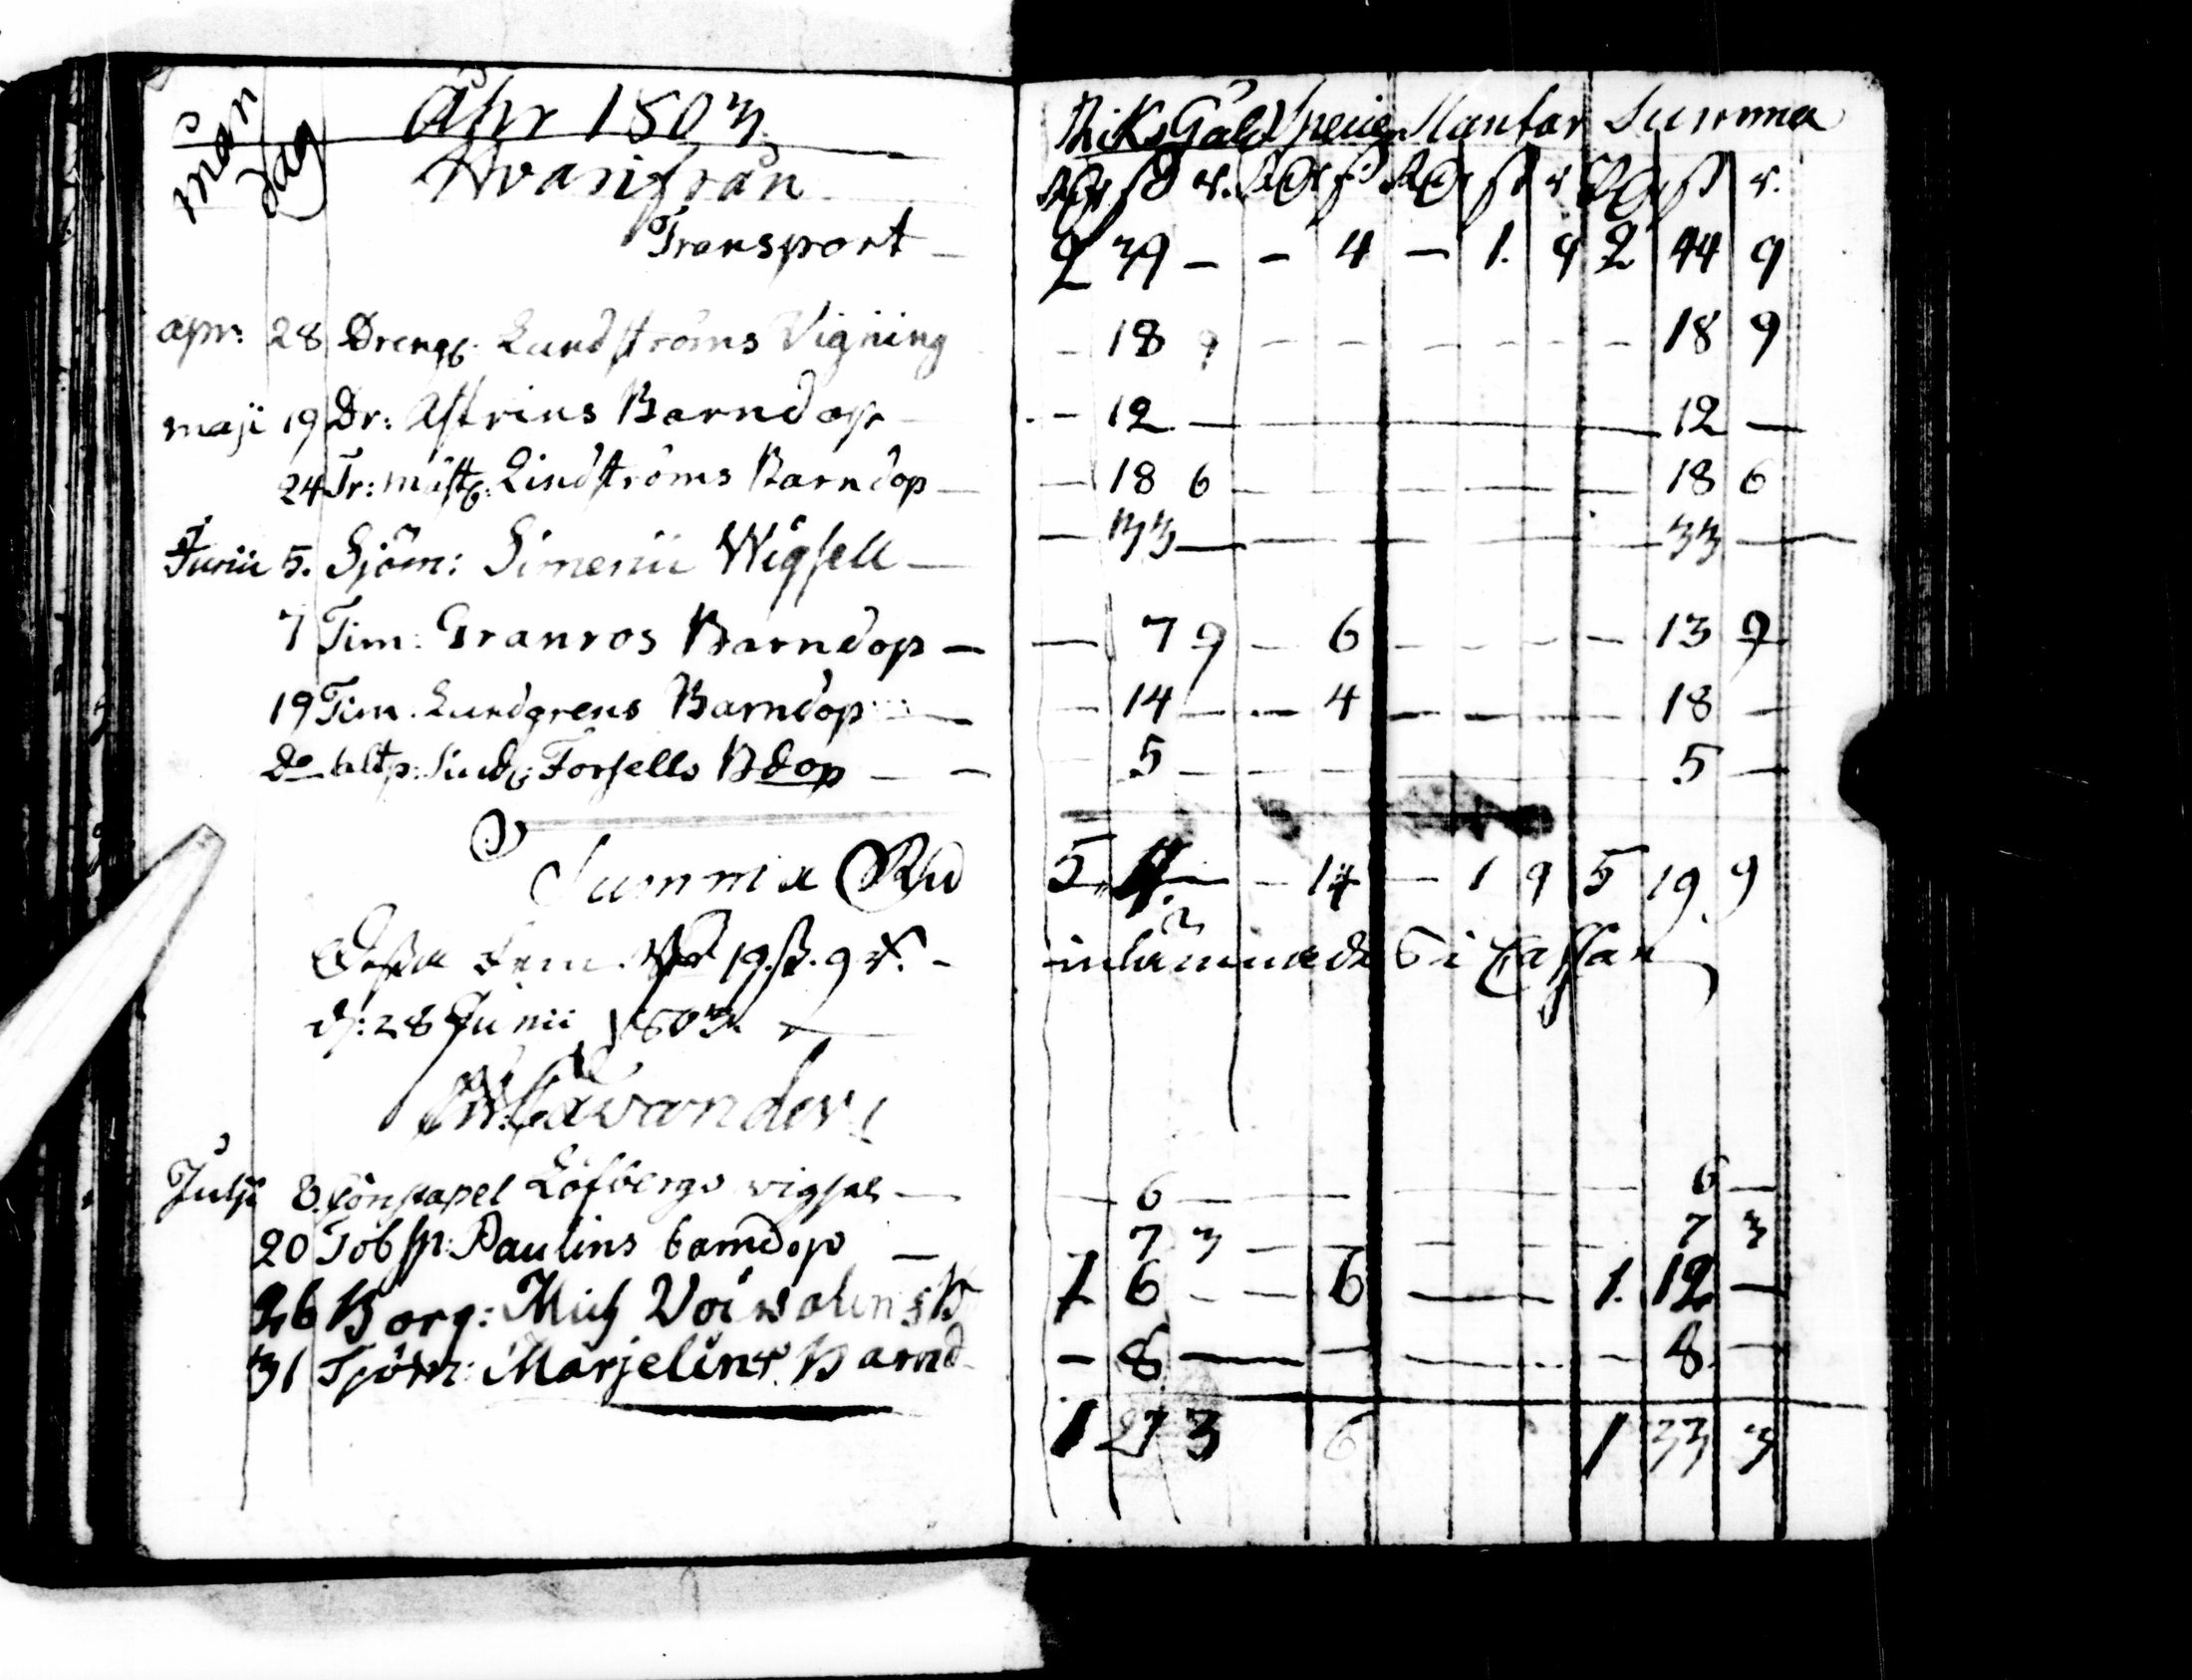 Åhr 1803
mån dag Hvarifrån Riks Gäld Specier Slantar Summa
Rdr ß r. Rdr ß Rdr ß r Rdr ß r.
Transport — 2 39 — — 4 — 1. 9 2 44 9
apr: 28 Drengs: Lundströms Vigning — 18 9 — — — — — — 18 9
maji 19 Dr: Astrins Barndop — — 12 — 12 —
24 Tr: mäst: Lindströms Barndop — — 18 6 — — — — — — 18 6
Junii 5. Sjöm: Simenii Wigsell — — 33 — 33 —
7 Tim: Granros Barndop — — 7 9 — 6 — — — — 13 9
19 Tim. Lundgrens Barndop — — 14 — — 4 — — — — 18 —
do Förfells Bdop — — 5 — 5 —
Summa Rd 5 4 — — 14 — 1 9 5 19 9
Dessa fem Rd 19 ß. 9 r. — inlämnade i Cassan
d: 28 Junii 1803
Cavander
Julji 8. Löfbergs vigsel — — 6 — 6 —
20 Tob sp: Paulins barndop — 7 3 — 7 3
26 Borg: Mich Voivalins B 1 6 — — 6 — 1. 12 —
31 Sjöm: Marjelins Barnd — 8 — 8 —
1 27 3 6 1 33 3